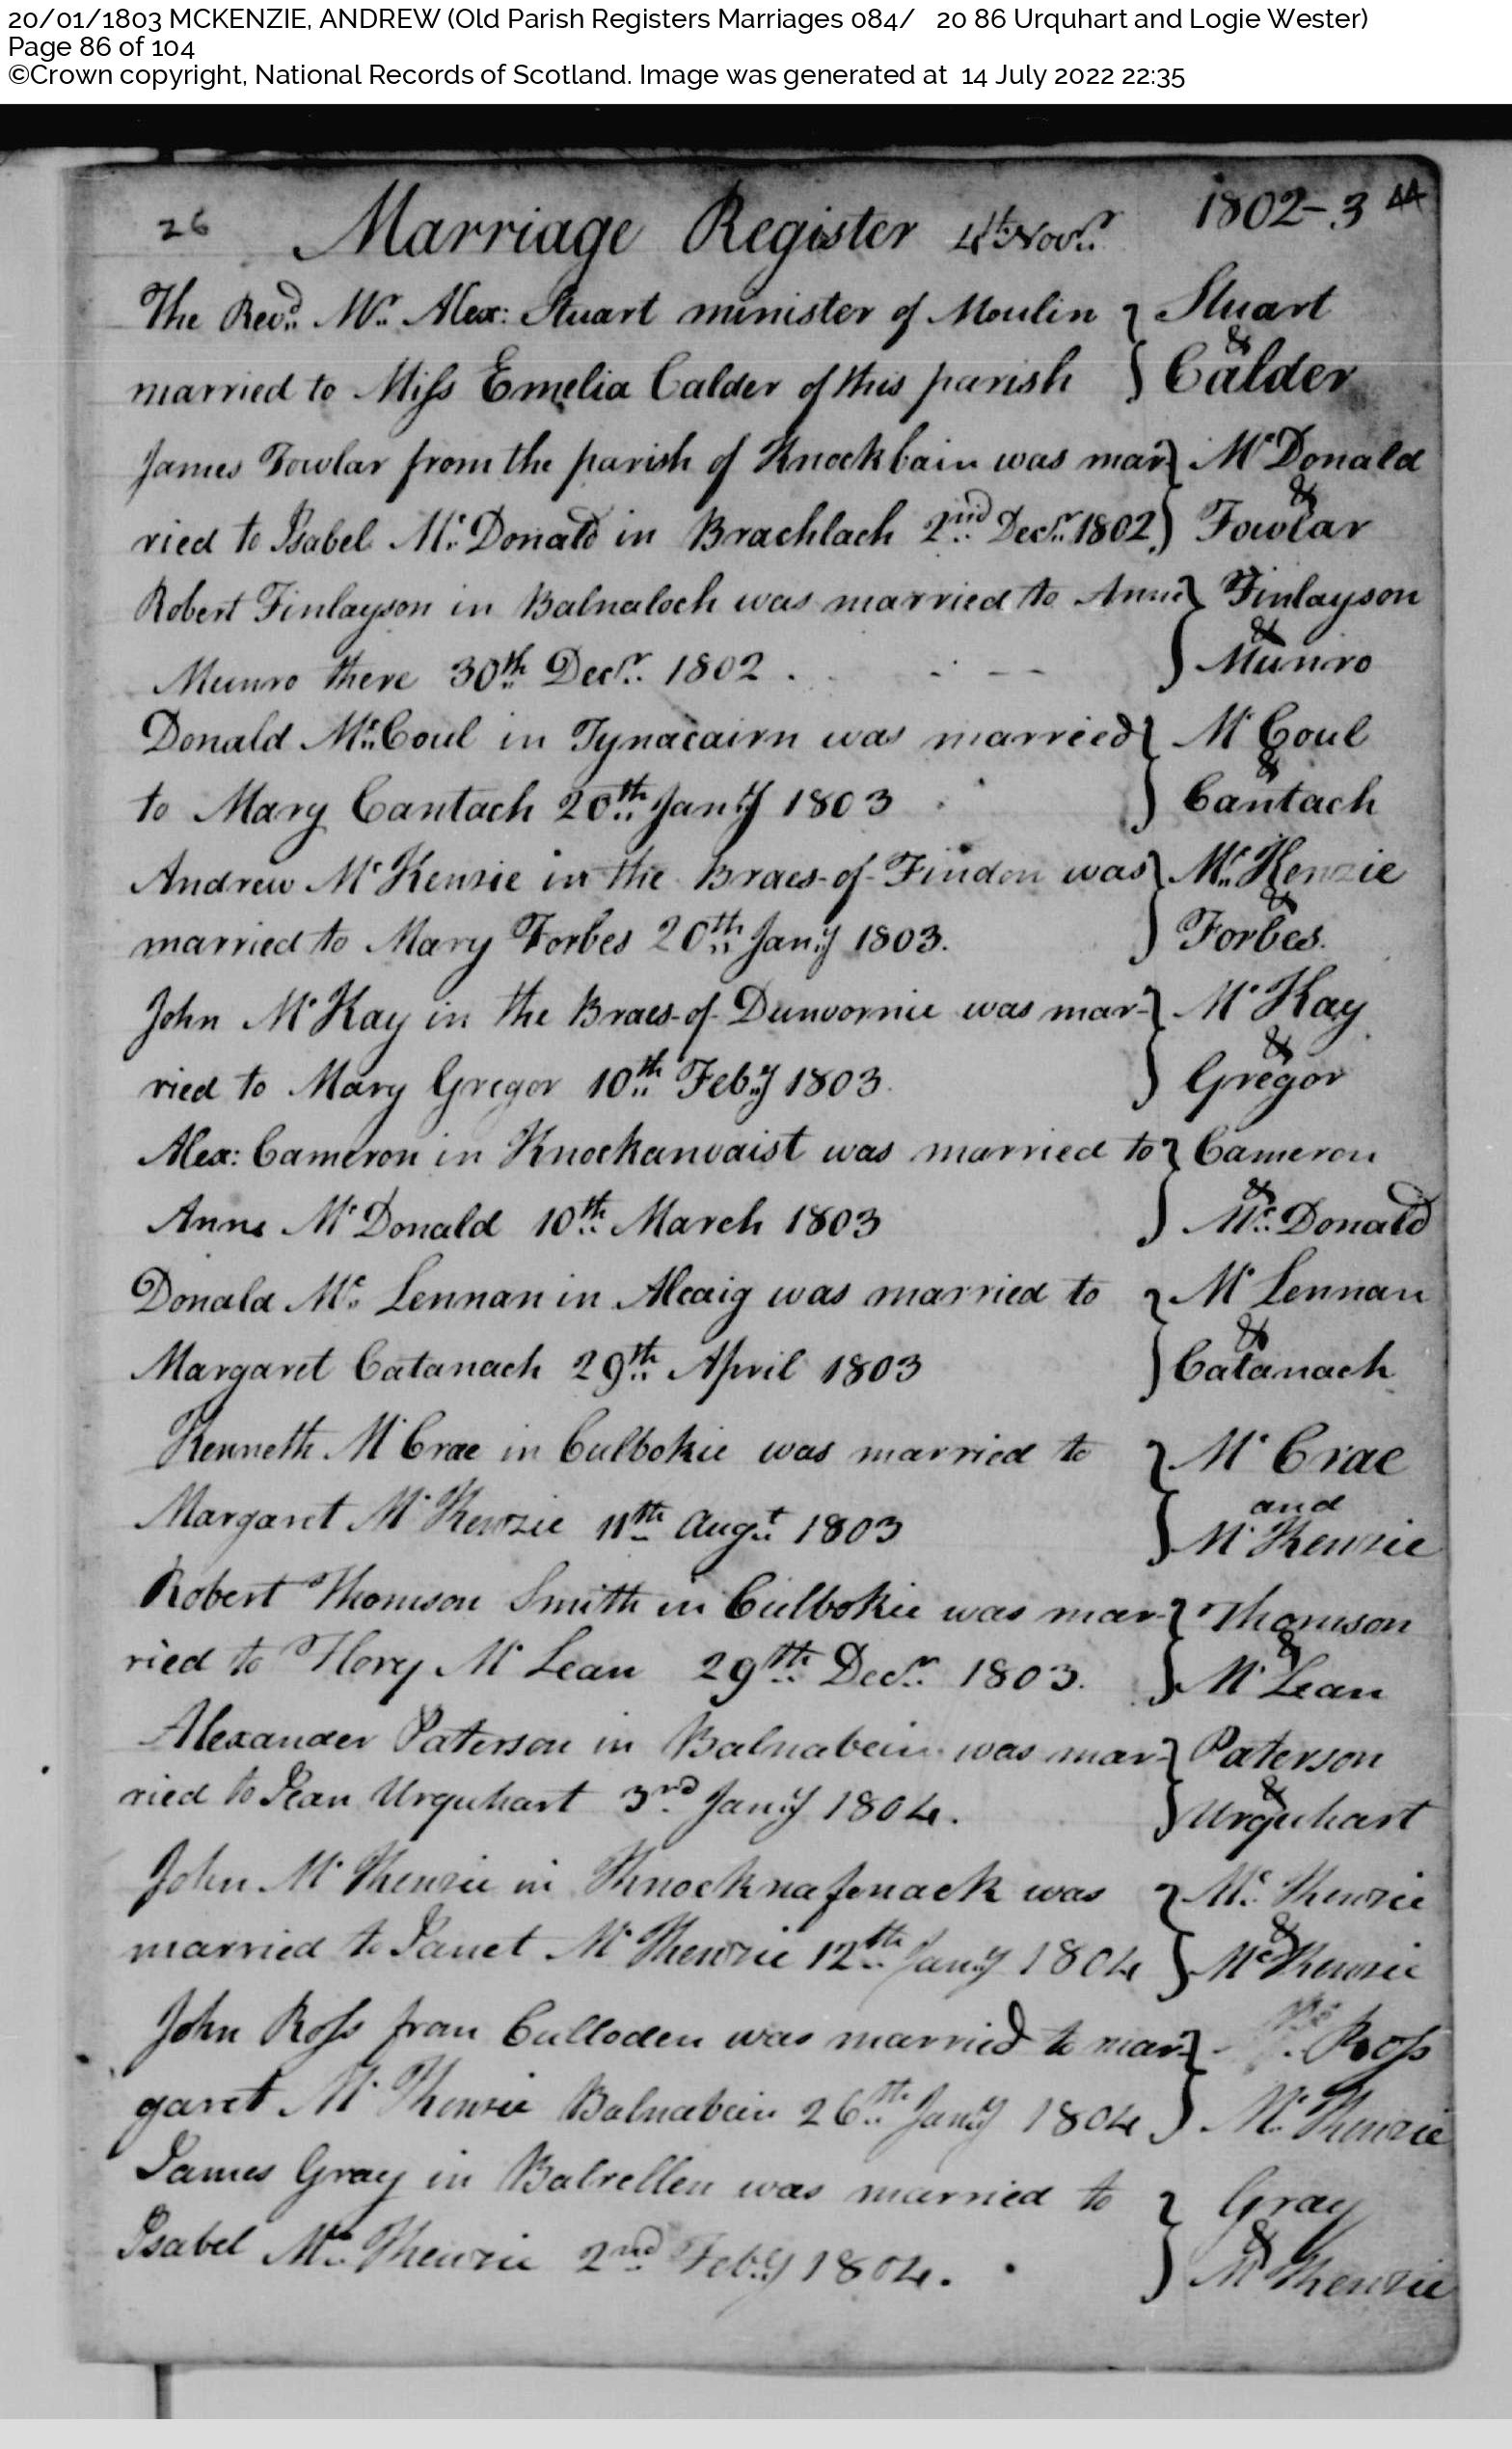 20/01/1803 MCKENZIE, ANDREW (Old Parish Registers Marriages 084/ 20 86 Urquhart and Logie Wester)
Page 86 of 104
©Crown copyright, National Records of Scotland. Image was generated at 14 July 2022 22:35
26 Marriage Register 4th Novr. 1802-3 44
The Revd. Mr. Alex: Stuart minister of Moulin } Stuart
&
married to Miss Emelia Calder of this parish } Calder
James Fowlar from the parish of Knockbain was mar } McDonald
&
ried to Isabel Mc. Donald in Brachlach 2nd Decr. 1802. } Fowlar
Robert Finlayson in Balnaloch was married to Anne } Finlayson
&
Munro there 30th Decr. 1802 . . - - } Munro
Donald Mc.Coul in Tynacairn was married } Mc Coul
&
to Mary Cantach 20th Jany 1803 } Cantach
Andrew Mc Kenzie in the Braes-of-Findon was } Mc. Kenzie
&
married to Mary Forbes 20th Jany 1803. } Forbes.
John Mc Kay in the Braes-of-Dunvornie was mar- } Mc Kay
&
ried to Mary Gregor 10th Feby 1803. } Gregor
Alex: Cameron in Knockanvaist was married to } Cameron
&
Anne Mc Donald 10th March 1803 } Mc. Donald
Donald Mc. Lennan in Alcaig was married to } Mc Lennan
&
Margaret Catanach 29th April 1803 } Catanach
Kenneth Mc Crae in Culbokie was married to } Mc Crae
and
Margaret Mc Kenzie 11th Augt 1803 } Mc Kenzie
Robert Thomson Smith in Culbokie was mar- } Thomson
&
ried to Flory Mc Lean 29th Decr. 1803. } Mc Lean
Alexander Paterson in Balnabein was mar- } Paterson
&
ried to Jean Urquhart 3rd Jany 1804. } Urquhart
John Mc Kenzie in Knocknafenack was } Mc. Kenzie
&
married to Janet Mc Kenzie 12th Jany 1804 } Mc Kenzie
John Ross from Culloden was married to mar- } Ross
garet Mc Kenzie Balnabein 26th Jany 1804 } Mc. Kenzie
James Gray in Balrellen was married to } Gray
&
Isabel Mc. Kenzie 2nd Feby 1804. } Mc Kenzie